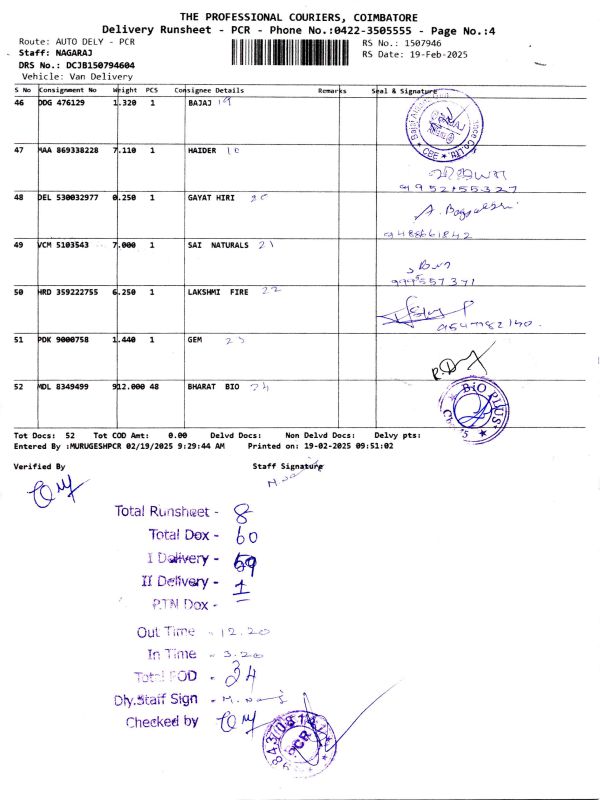 THE PROFESSIONAL COURIERS, COIMBATORE
Delivery Runsheet - PCR - Phone No.:0422-3505555 - Page No.:4
Route: AUTO DELY - PCR
RS No.: 1507946
Staff: NAGARAJ
RS Date: 19-Feb-2025
DRS No.: DCJB150794604
Vehicle: Van Delivery
S No Consignment No Weight PCS Consignee Details Remarks Seal & Signature
46 DDG 476129 1.320 1 BAJAJ 19
47 MAA 869338228 7.110 1 HAIDER
9952155327
48 DEL 530032977 0.250 1 GAYAT HIRI 20
9488661842
49 VCM 5103543 7.000 1 SAI NATURALS 21
50 HRD 359222755 6.250 1 LAKSHMI FIRE 22
51 PDK 9000758 1.440 1 GEM 23
52 MDL 8349499 912.000 48 BHARAT BIO 24
BIO PLUS
Tot Docs: 52 Tot COD Amt: 0.00 Delvd Docs: Non Delvd Docs: Delvy pts:
Entered By :MURUGESHPCR 02/19/2025 9:29:44 AM Printed on: 19-02-2025 09:51:02
Verified By Staff Signature
Total Runsheet - 8
Total Dox - 60
I Delivery - 59
II Delivery - 1
P.T.N Dox -
Out Time - 12.20
In Time - 3.20
Total POD - 34
Dly.Staff Sign -
Checked by
PCR